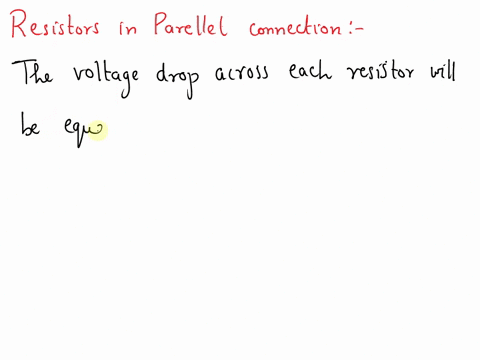 Resistors in Parellel connection :-
The voltage drop across each resistor will
be equ